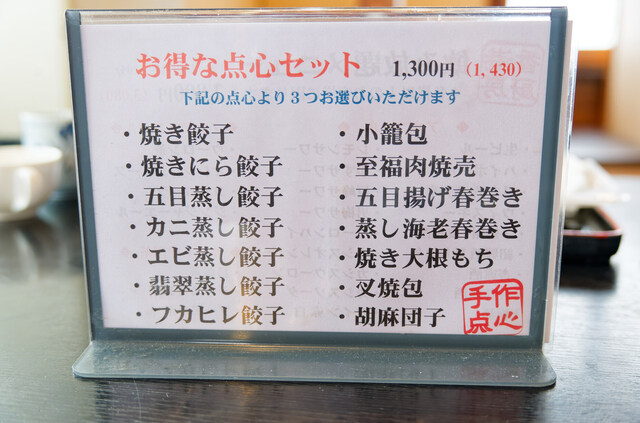 お得な点心セット 1,300円(1,430)
下記の点心より3つお選びいただけます
・焼き餃子
・焼きにら餃子
・五目蒸し餃子
・カニ蒸し餃子
・エビ蒸し餃子
・翡翠蒸し餃子
・フカヒレ餃子
・小籠包
・至福肉焼売
・五目揚げ春巻き
・蒸し海老春巻き
・焼き大根もち
・叉焼包
・胡麻団子
手作
点心